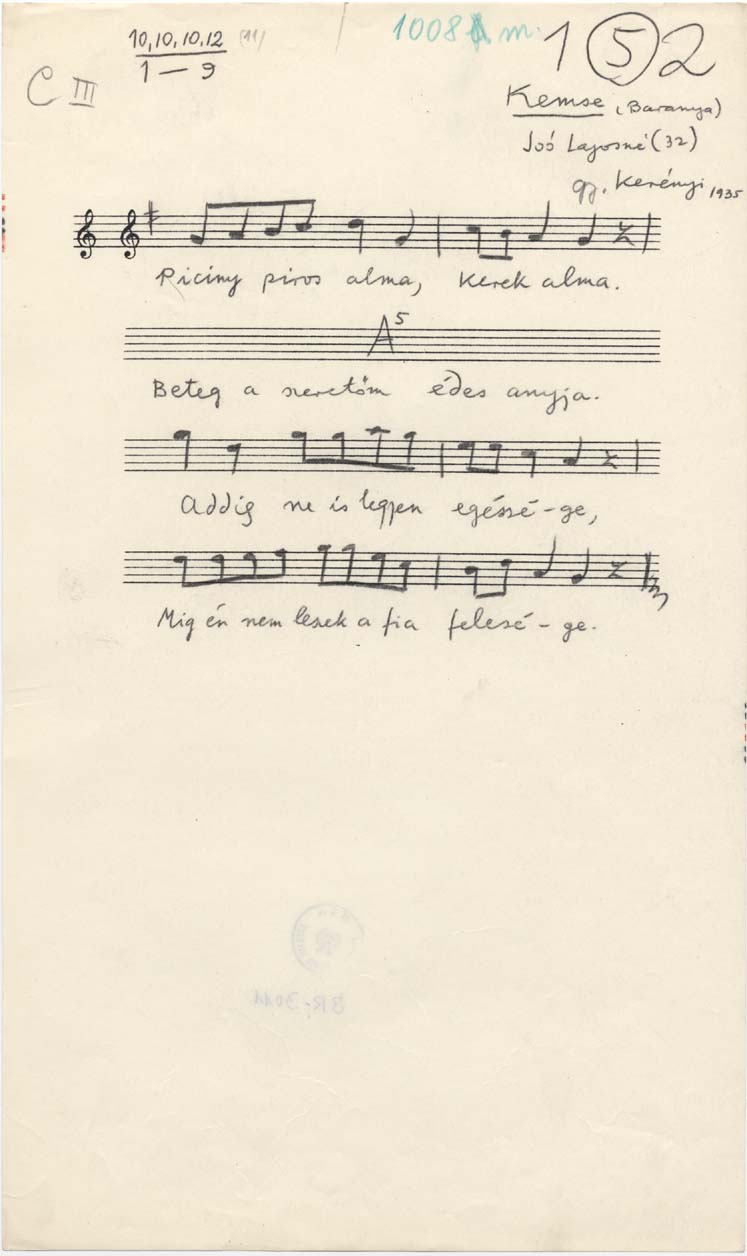 10,10,10,12 (11)
1 – 9
C III
1008 m.
1 5 2
Kemse (Baranya)
Joó Lajosné (32)
gy. Kerényi 1935
Piciny piros alma, kerek alma.
A5
Beteg a szeretőm édes anyja.
Addig ne is legyen egészsé-ge,
Mig én nem leszek a fia felesé-ge.
BR-3011